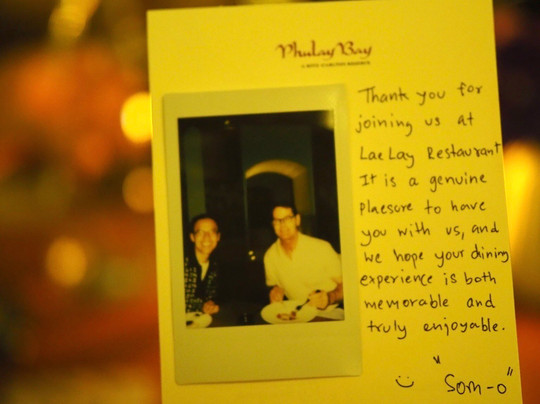 Phulay Bay
A RITZ-CARLTON RESERVE
Thank you for
joining us at
Lae Lay Restaurant
It is a genuine
plaesure to have
you with us, and
we hope your dining
experience is both
memorable and
truly enjoyable.
"Som-o"